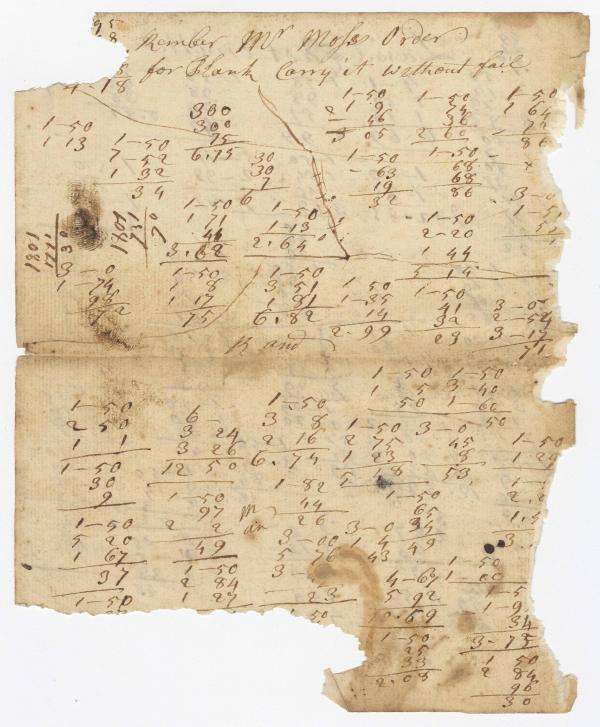 95
8
Rember Mr Moses Order
for Plank Carry it without fail
4-18
300
300
75
6.75
1-50
1 13
1-50
7-52
1 32
34
30
30
7
6
1-50
2 19
46
3 05
1-50
74
36
2 60
1-50
1 64
72
86
1-50
63
19
32
1-50
68
68
86
1801
1731
70
1801
1771
30
1-50
71
44
3.62
1-50
1-13
2.64
1-50
2-20
1 44
5 14
3-0
1-74
98
72
1-50
1 8
1 17
75
1-50
3 51
1 81
6.82
1 50
1-35
14
2 99
1-50
41
32
23
3-0
2-54
3-17
71
R and
1-50
2 50
1 1
1-50
30
9
1-50
5 20
1 67
37
1-50
6-
3 24
3 26
12 50
1-50
97
2 2
49
1-50
2 84
1 27
1-50
3 8
2 16
6.74
1-82
44
26
3-00
5 76
3-
23
50
1-50
1 5
50
1-50
3-40
1-60
50
1-50
2 75
1 23
5 18
3-0
45
8
53
1-50
65
34
49
3-0
1 4
43
1-50
1 29
1-50
1-00
4-67
5 92
10.59
1-50
25
33
2.08
1-5
1-9
34
3-75
1 50
2 84
96
30